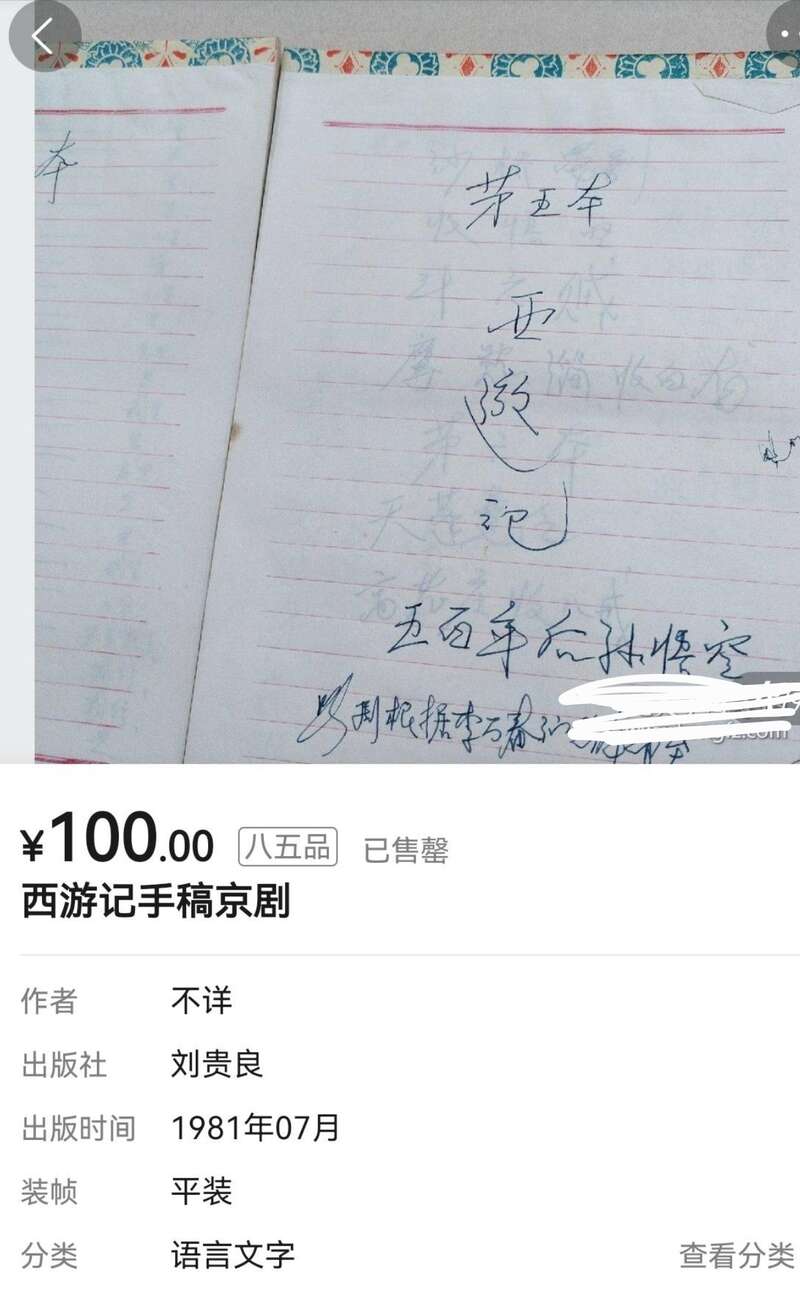 本
第五本
西
游
记
五百年后孙悟空
京剧根据李万春
¥100.00 八五品 已售罄
西游记手稿京剧
作者 不详
出版社 刘贵良
出版时间 1981年07月
装帧 平装
分类 语言文字 查看分类